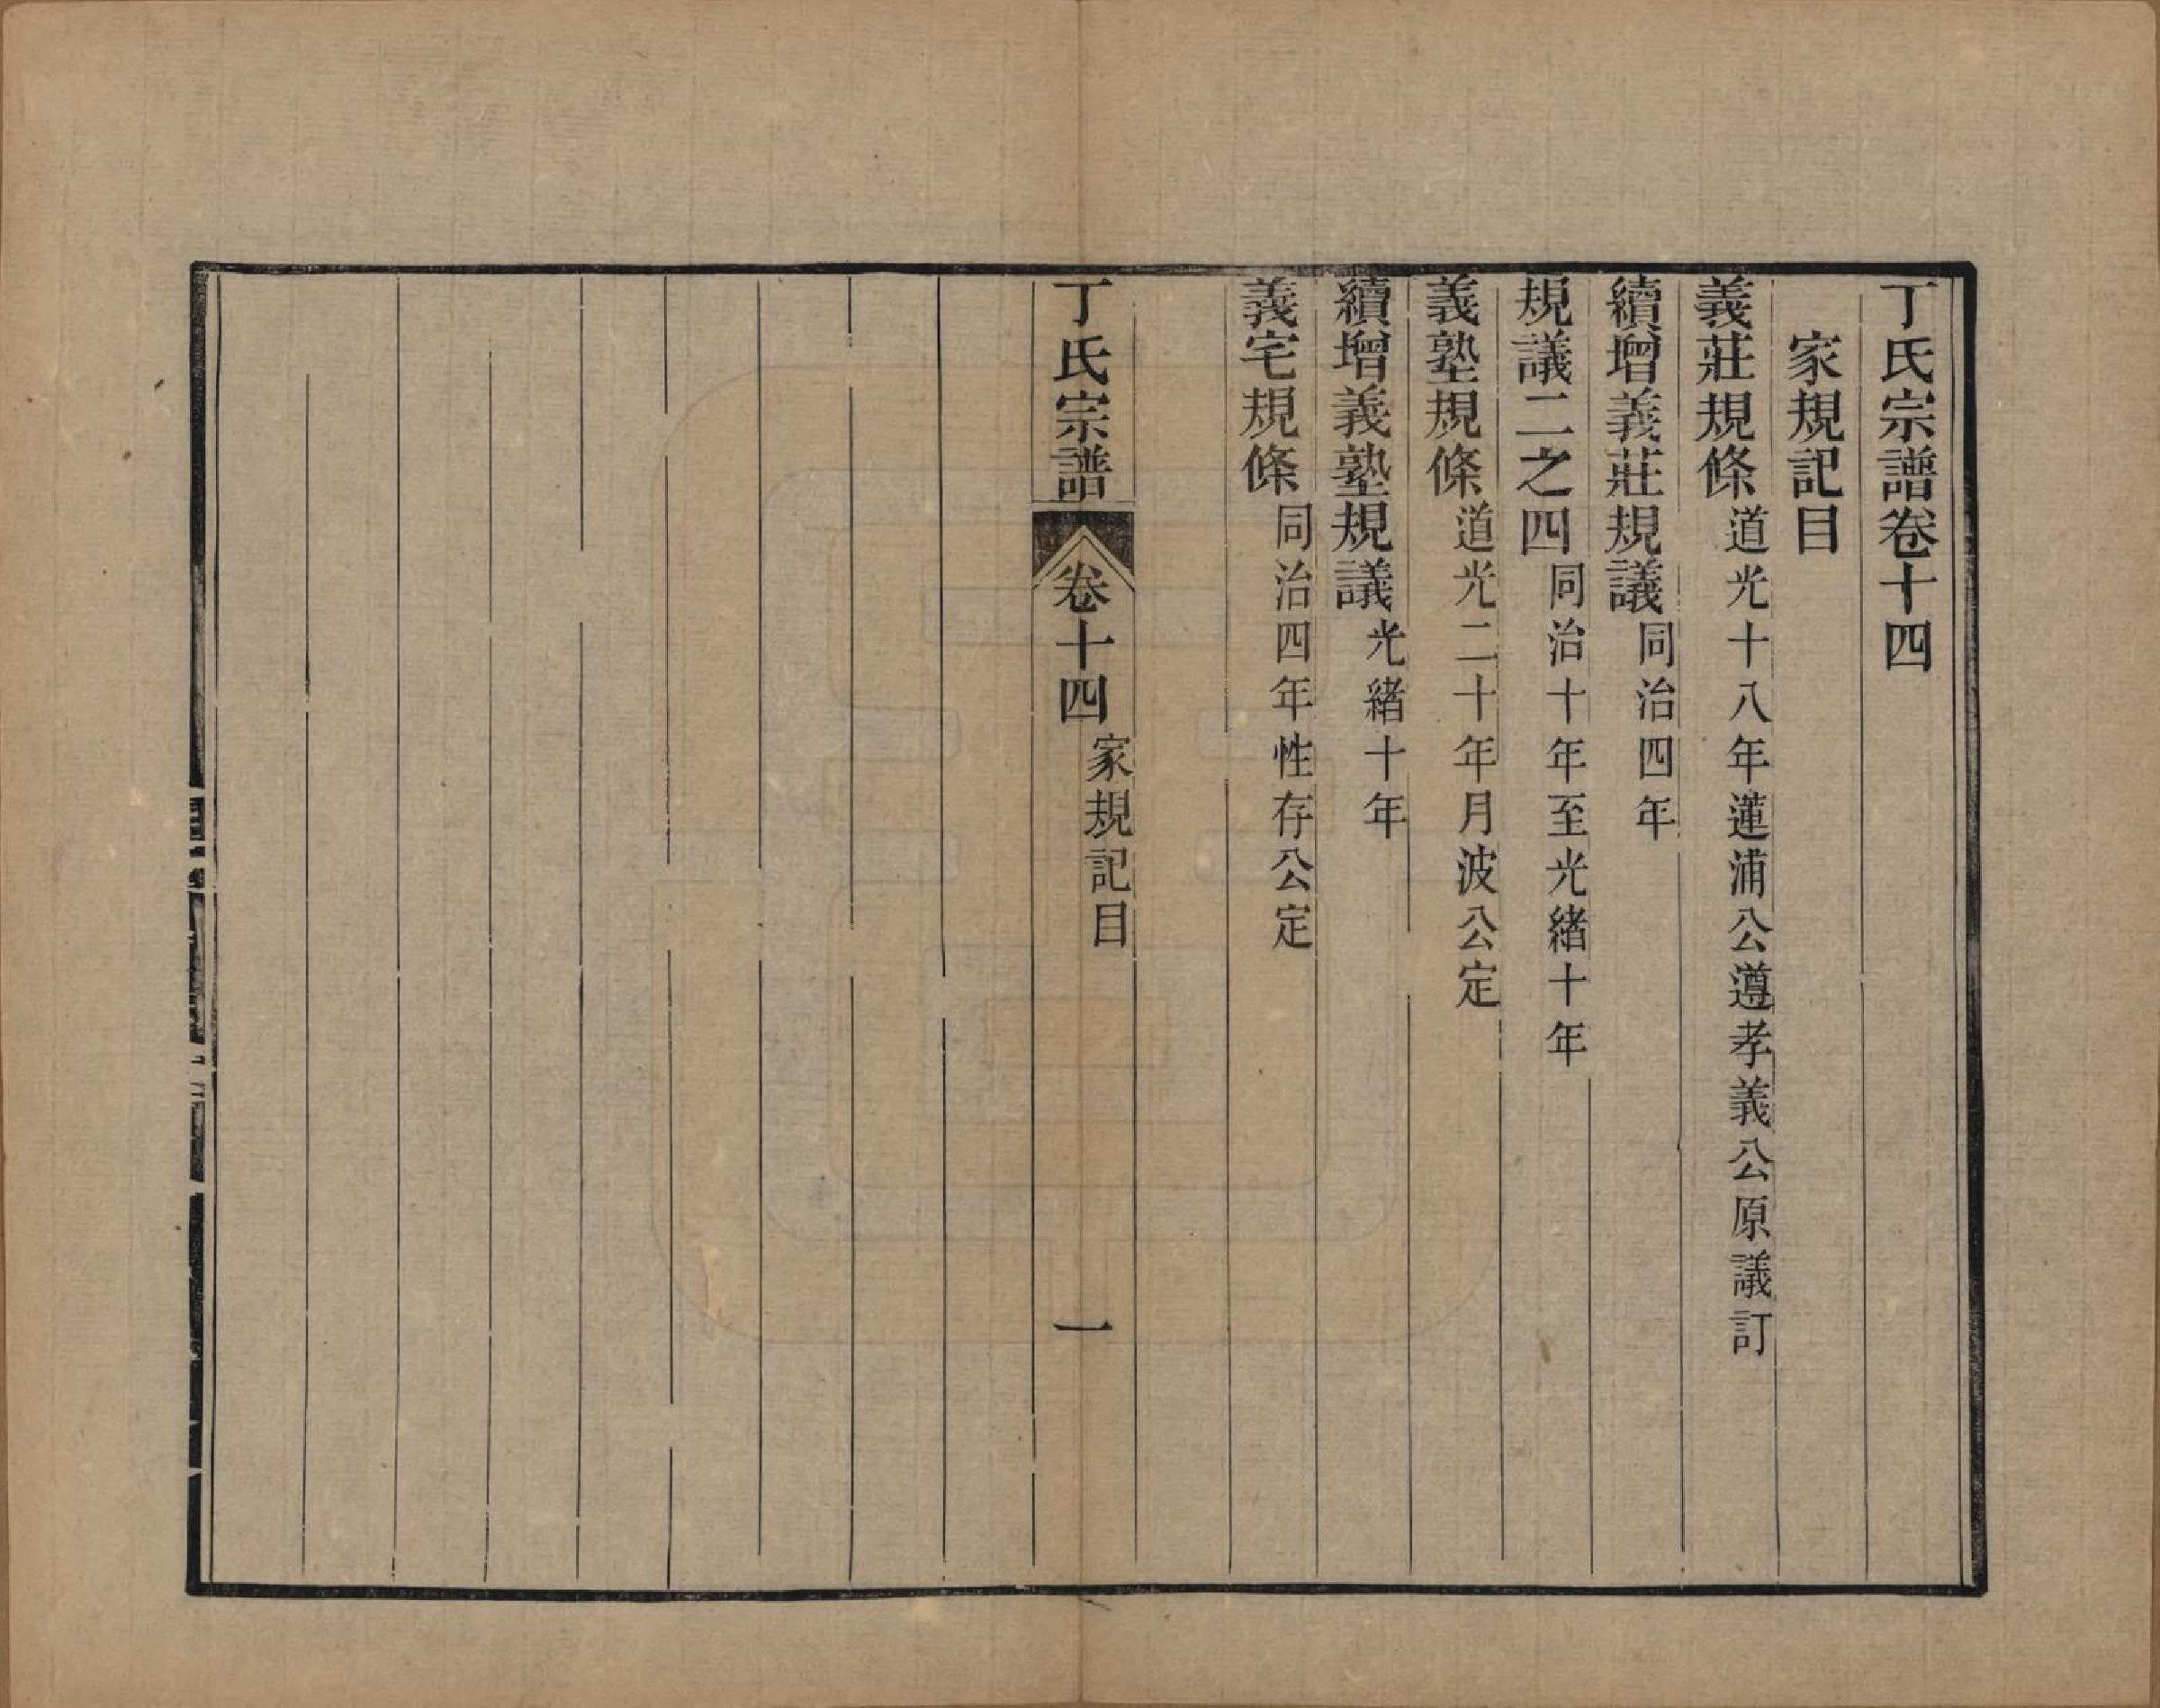 丁氏宗譜卷十四
家規記目
義莊規條道光十八年蓮浦公遵孝義公原議訂
續增義莊規議同治四年
規議二之四同治十年至光緒十年
義塾規條道光二十年月波公定
續增義塾規議光緒十年
義宅規條同治四年性存公定
丁氏宗譜 卷十四 家規記目 一